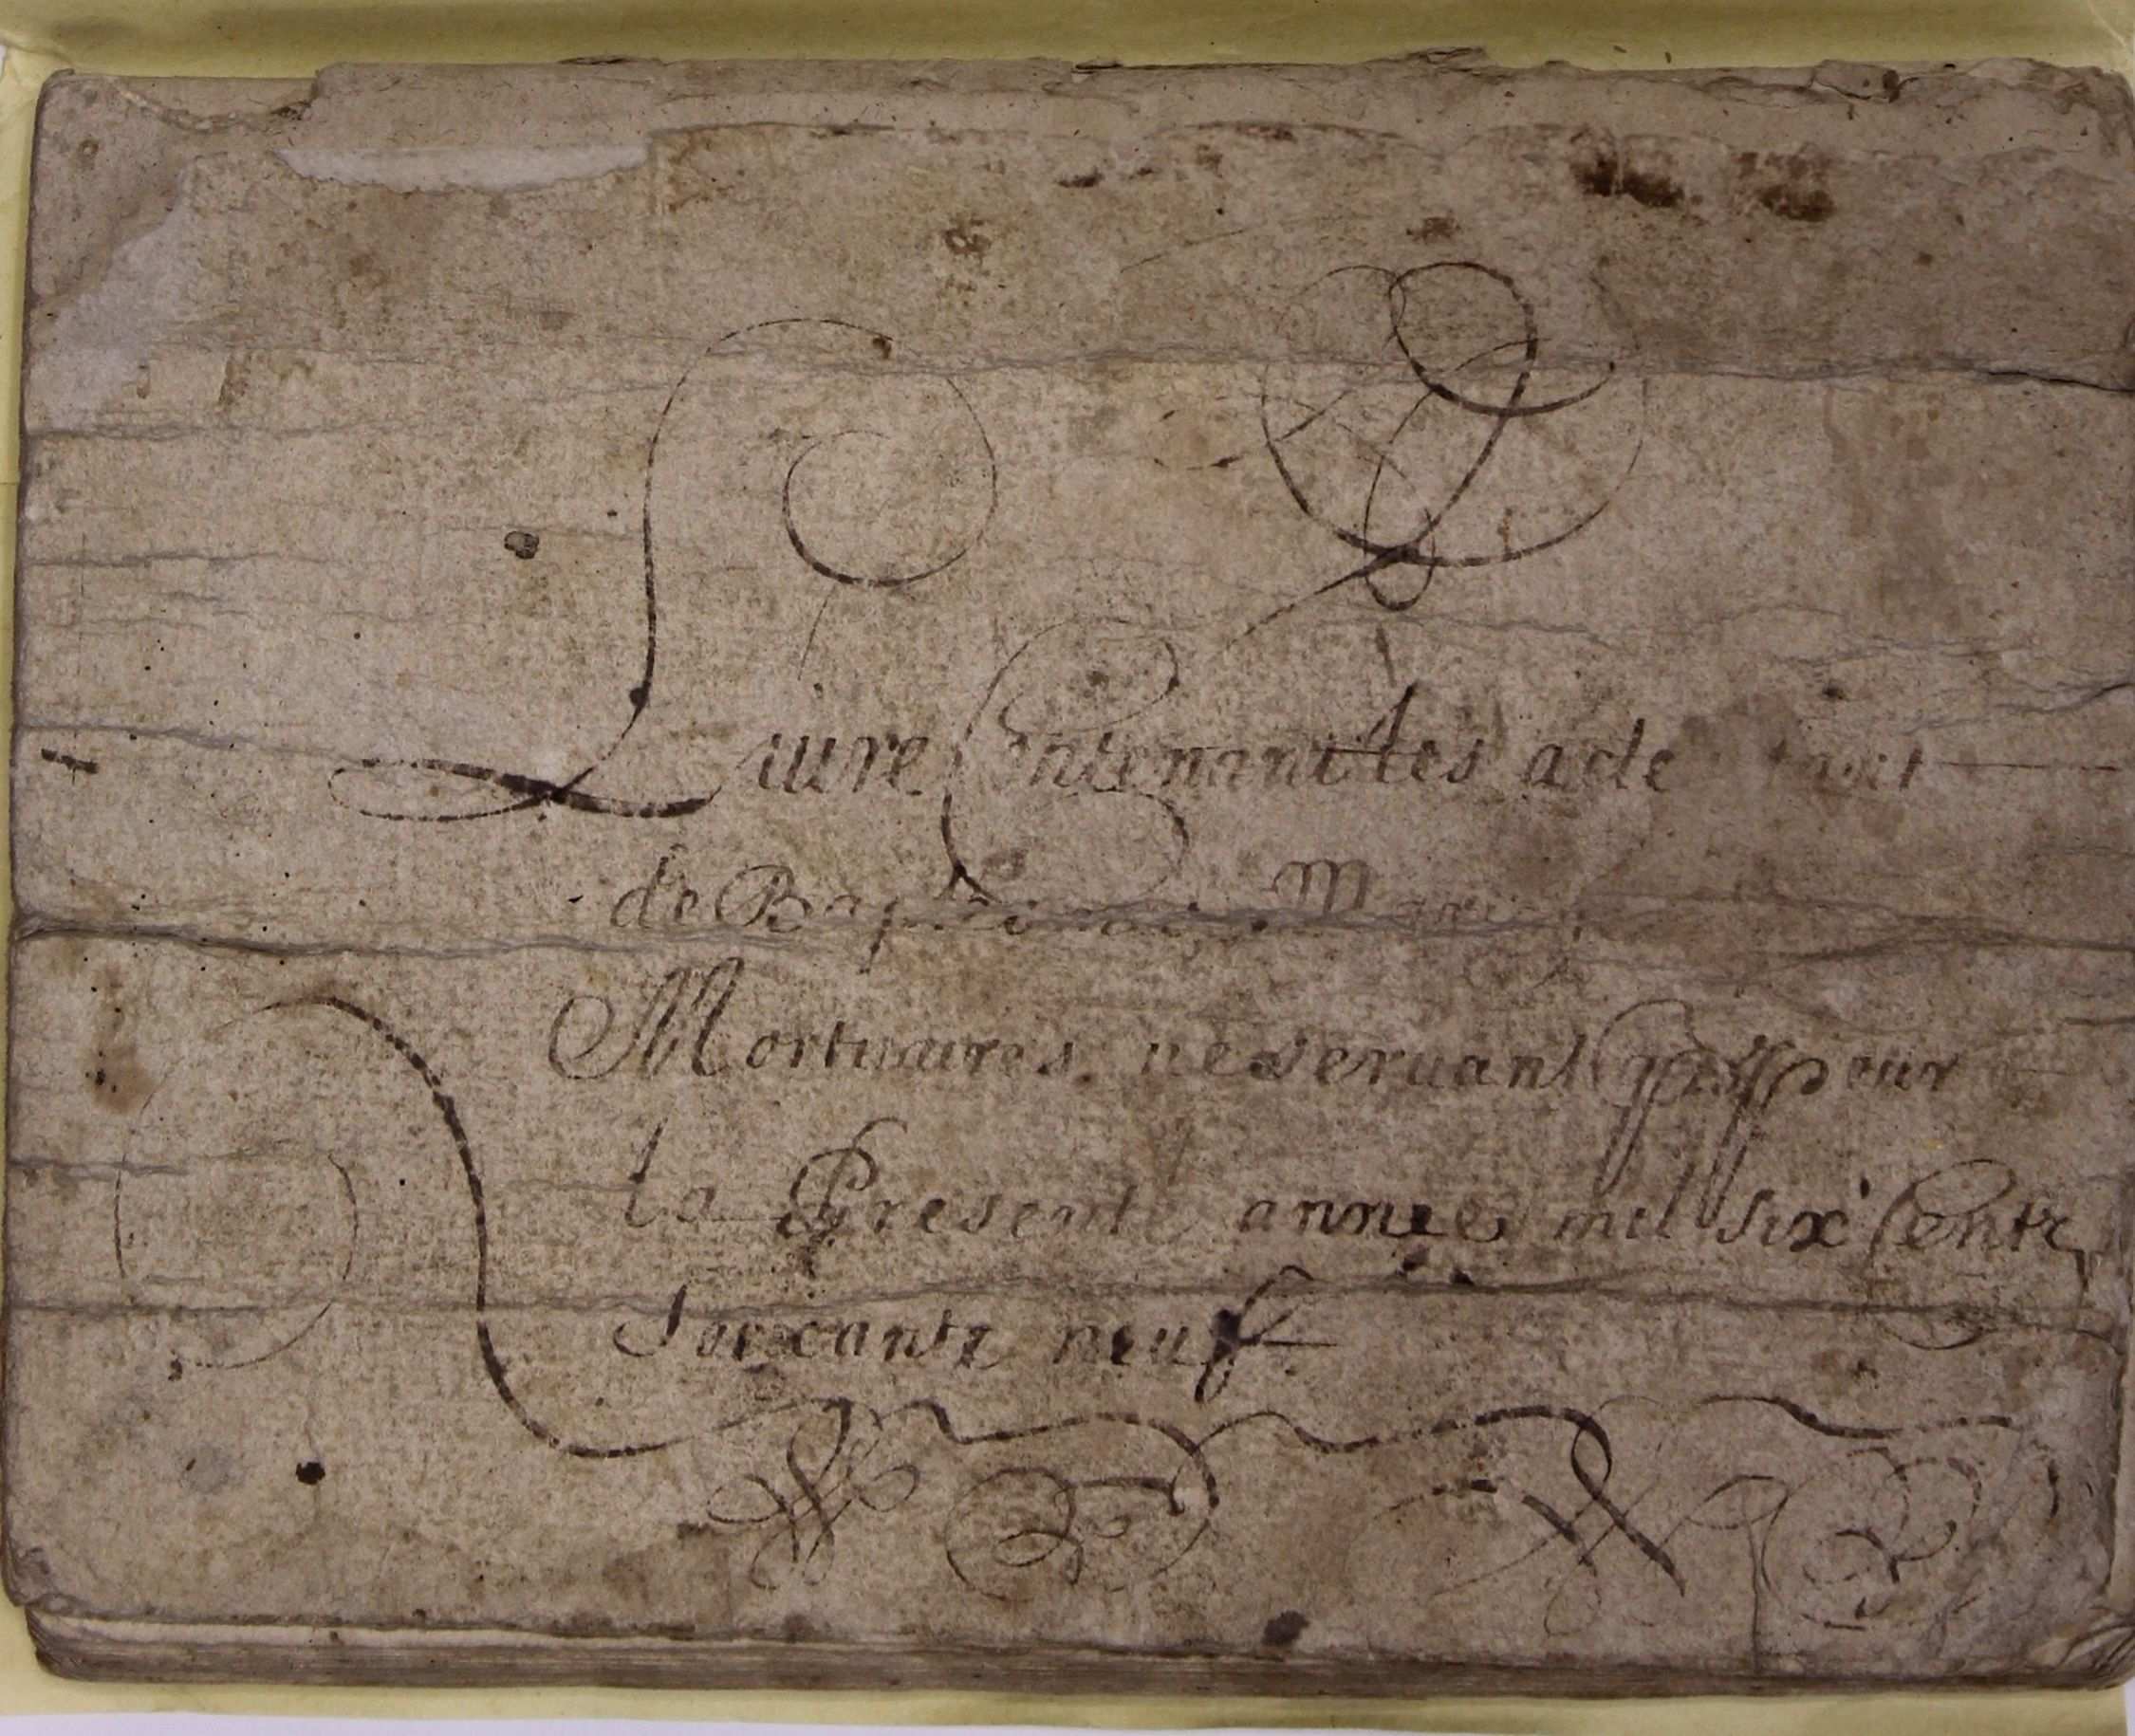 Liure Contenant les acte tant
de Baptismes Maria
Mortuaires ne seruant que pour
la Presente année mil six Cents
soixante neuf